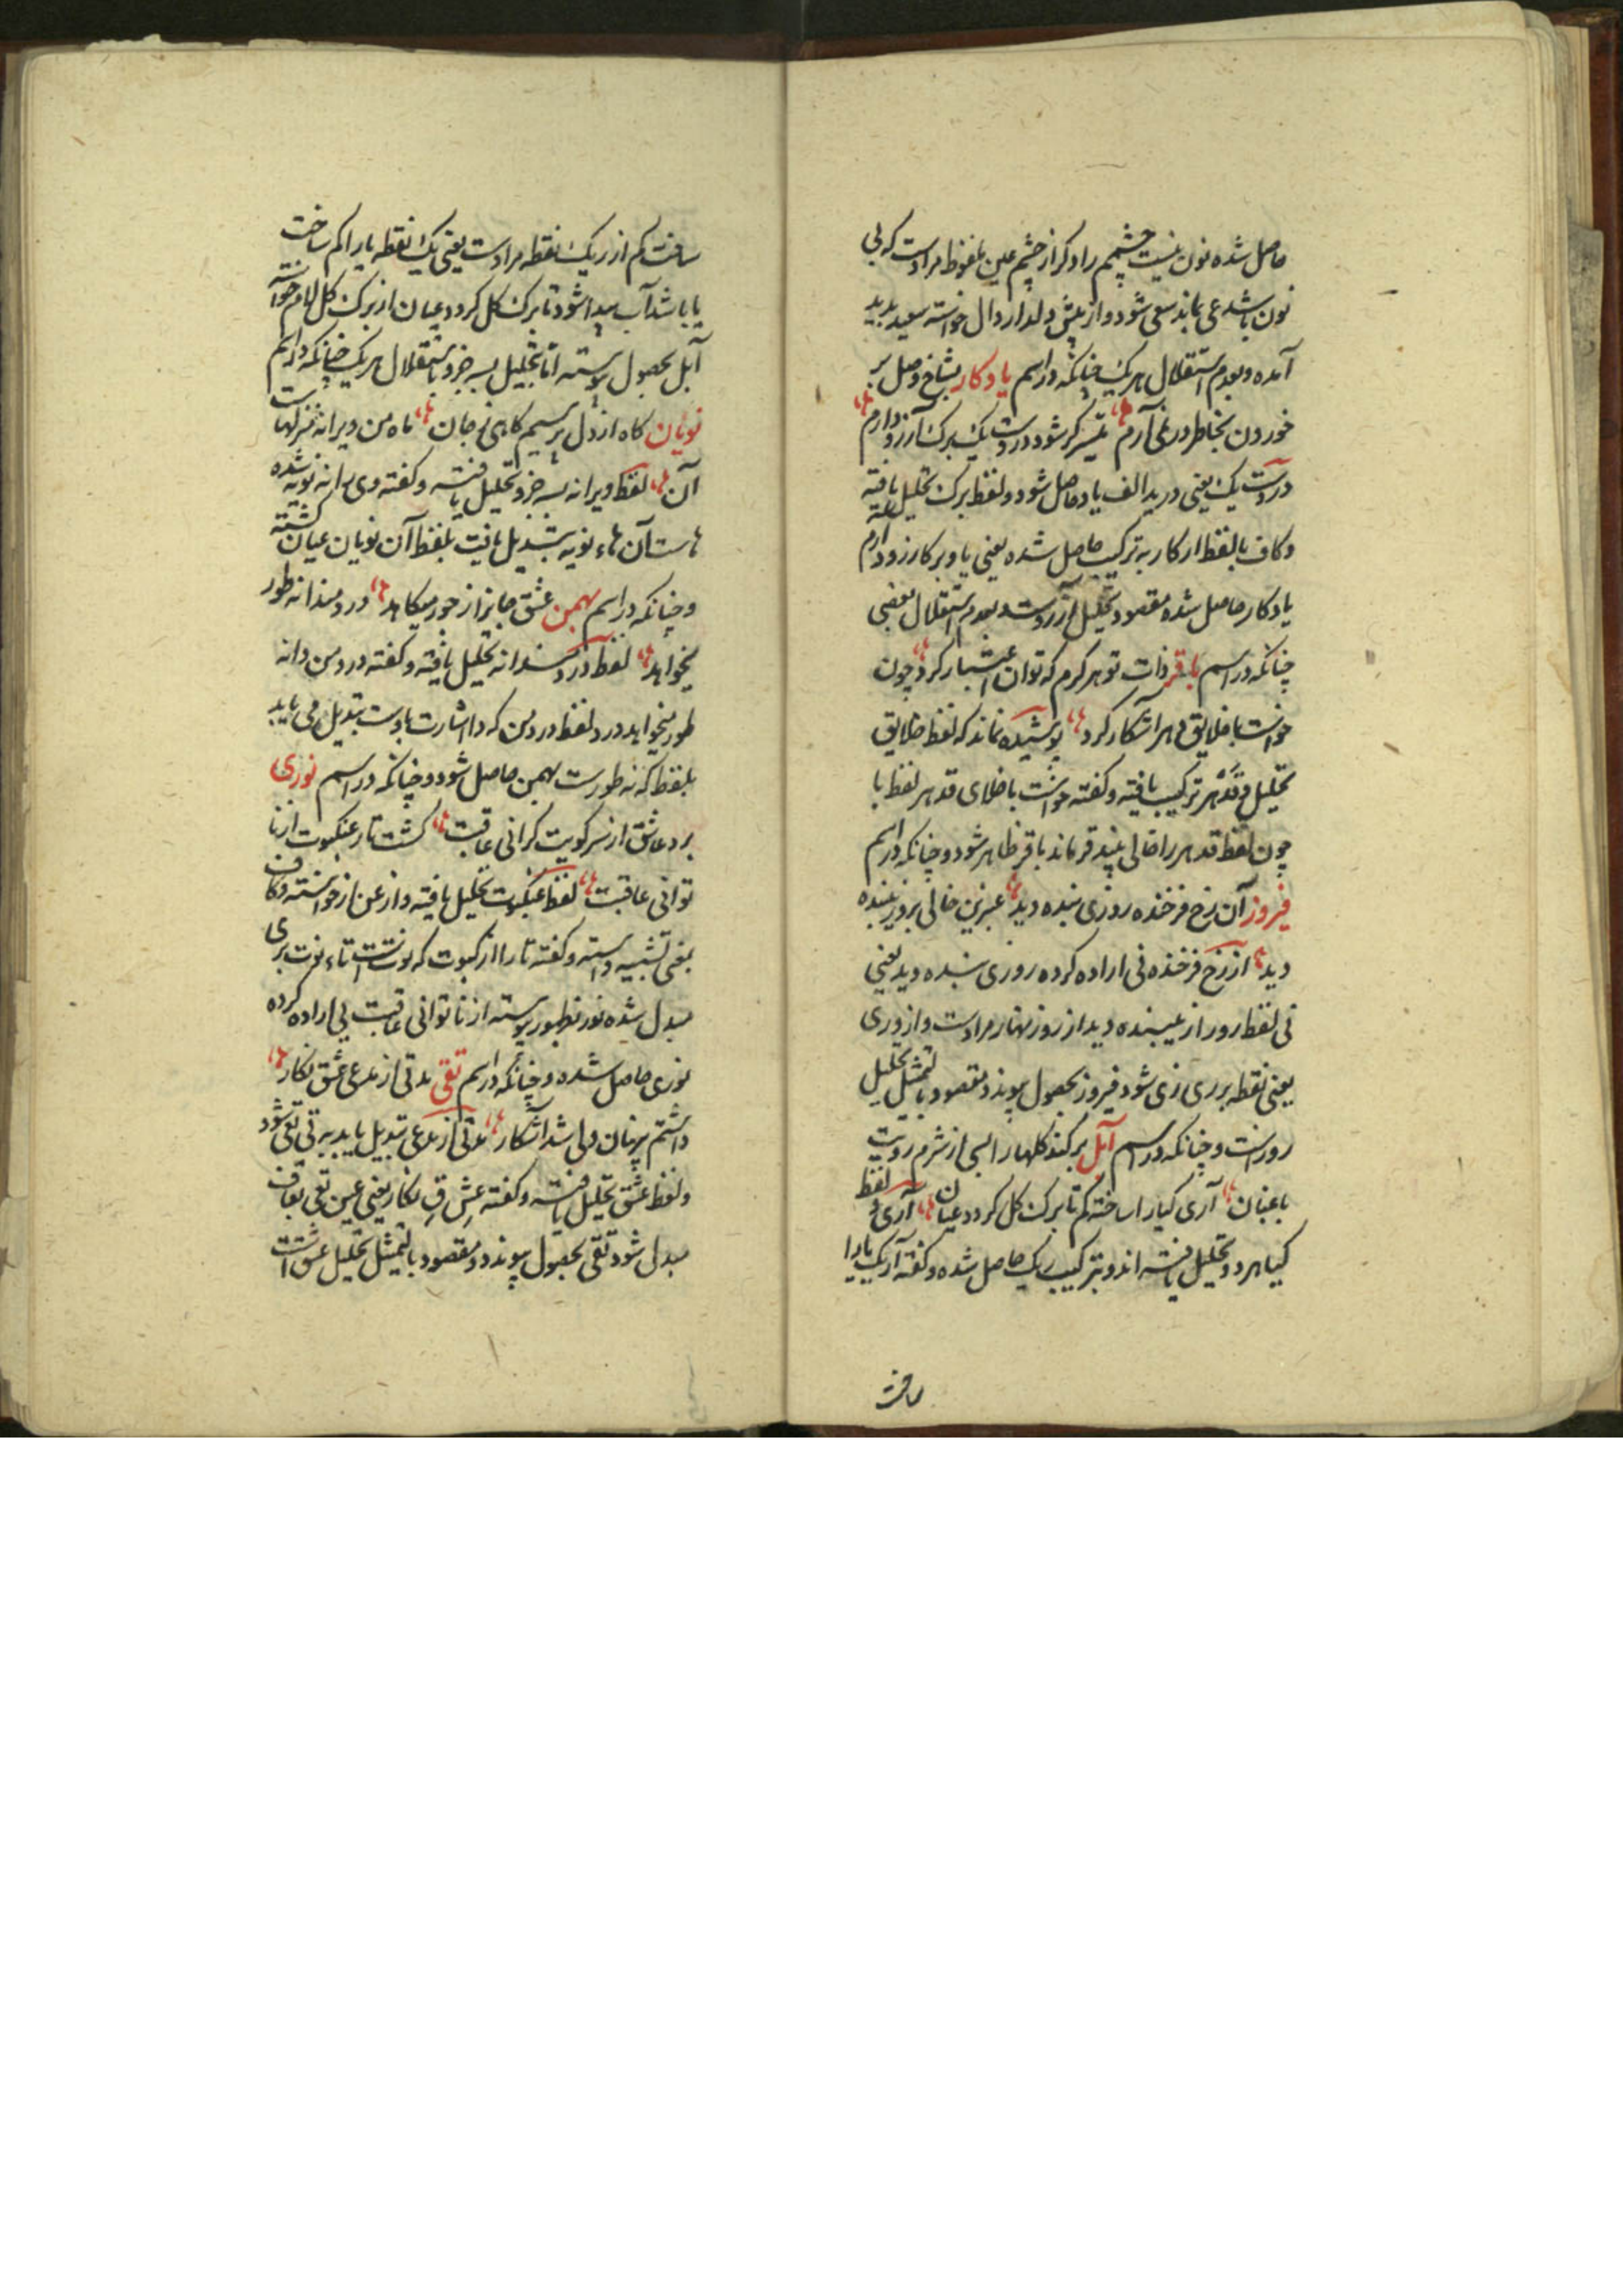 حاصل شده نون نیست چشمم را دکر از چشم عین ملفوظ مرادست که بی
نون باشد عی بماند سعی شود و از پیش دلدار دال خواسته سعید پدید
آمده و بعدم استقلال هر یک چنانکه در اسم یادکار بشاخ وصل بر
خوردن بخاطر در نمی آرم میسر کر شود در دست یک برک آرزو دارم
در دست یک یعنی در ید الف یاد حاصل شود و لفظ برک تحلیل یافته
و کاف بالفظ ار کار به ترکیب حاصل شده یعنی یاد بر کار زود ارم
یادکار حاصل شده مقصود تحلیل آرزوست و بعدم استقلال بعضی
چنانکه در اسم باقر ذات تو هر کرم که توان اعتبار کرد چون
خواست با خلایق هر آشکار کرد پوشیده نماند که لفظ خلایق
تحلیل و قد هر ترکیب یافته و کفته خواست با خلای قد هر لفظ با
چون لفظ قد هر را خالی بیند قر ماند باقر ظاهر شود و چنانکه در اسم
فیروز آن رخ فرخنده روزی بنده دید عنبرین خالی بروز بنده
دید از رخ فرخنده فی اراده کرده روزی بنده دید یعنی
فی لفظ روز از غیبنده دید از روز نهار مرادست و از وزی
یعنی نقطه بر ری زی شود فیروز بحصول پیوندد مقصود بالتمثیل تحلیل
روزست و چنانکه در اسم آبل بر کند کلها را بسی از شرم رویت
باغبان آری کیا را ساخته کم تا برک کل کردد عیان لفظ آری و
کیا هر دو تحلیل یافته اند و بترکیب ریک حاصل شده و کفته آ ریک یا را
ساخت
ساخت کم از ریک نقطه مرادست یعنی یک نقطه یا را کم ساخت
یا با شد آب پیدا شود تا برک کل کردد عیان از برک کل لام خواسته
آبل بحصول پیوسته اما تحلیل بسه جزو باستقلال هر یک چنانکه در اسم
نویان کاه از دل پرسیم کاهی ز جان ماه من ویرانه منزلهاست
آن لفظ ویرانه بسه جزو تحلیل یافته و کفته وی را نه نویه شده
هاست آن هاء نویه تبدیل یافت بلفظ آن نویان عیان کشته
و چنانکه در اسم بهمن عشق جابر از خور میکاهد دردمندانه طور
میخواهد لفظ دردمندانه تحلیل یافته و کفته درد من دانه
طور میخواهد درد لفظ درد من که دا اشارت باوست تبدیل می یابد
بلفظ که نه طورست بهمن حاصل شود و چنانکه در اسم نوری
برد عاشق از سر کویت کرانی عاقبت کشت تار عنکبوت از نا
توانی عاقبت لفظ عنکبوت تحلیل یافته و از عن از خواسته و کاف
بمعنی تشبیه دانسته و کفته تار از کبوت که نوتست تاء نوت بری
مبدل شده نور بظهور پیوسته از ناتوانی عاقبت یی اراده کرده
نوری حاصل شده و چنانکه در اسم تقی مدتی از مدعی عشق نکار
داشتم پنهان ولی شد آشکار مدتی از مدعی تبدیل یابد به تی تعی شود
و لفظ عشق تحلیل یافته و کفته عش ق نکار یعنی عین تعی بقاف
مبدل شود تقی بحصول پیوندد و مقصود بالتمثیل تحلیل عشقست